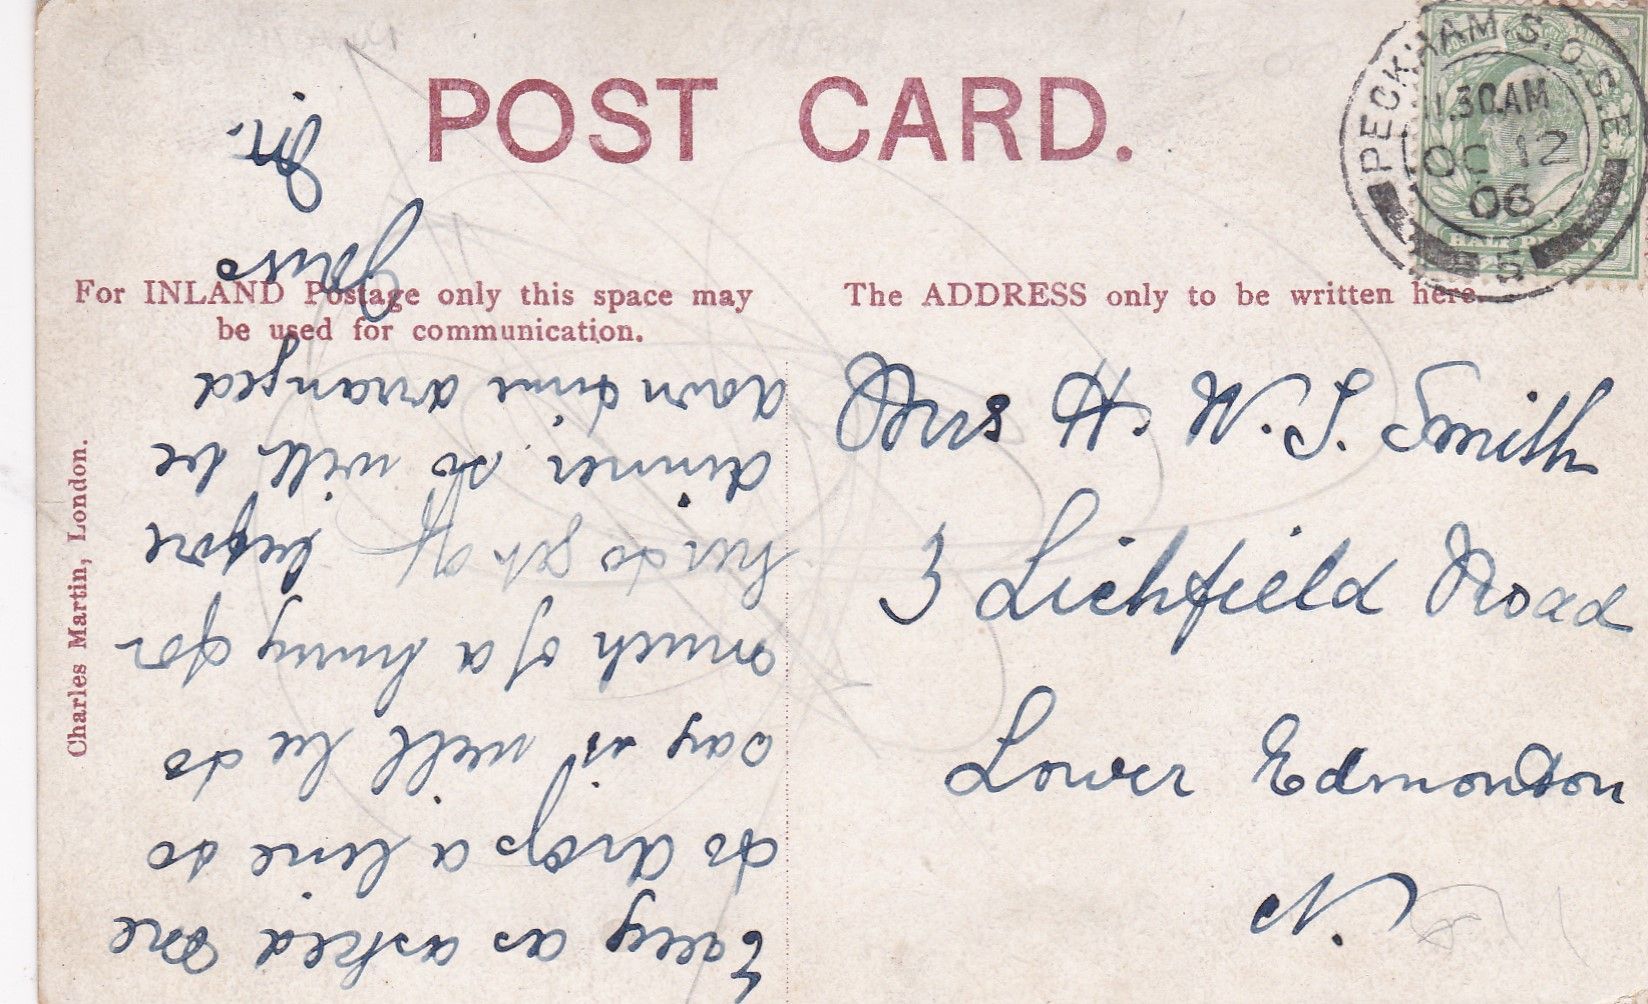 POST CARD.
PECKHAM S.O.S.E.
11.30AM
OC 12
06
5
HALF PENNY
For INLAND Postage only this space may
be used for communication.
The ADDRESS only to be written here.
Charles Martin, London.
Mrs H. W. T. Smith
3 Lichfield Road
Lower Edmonton
N.
as asked me
to drop a line to
say it will be to
much of a hurry for
her to get off before
dinner. so will be
down time arranged
Yours
M.